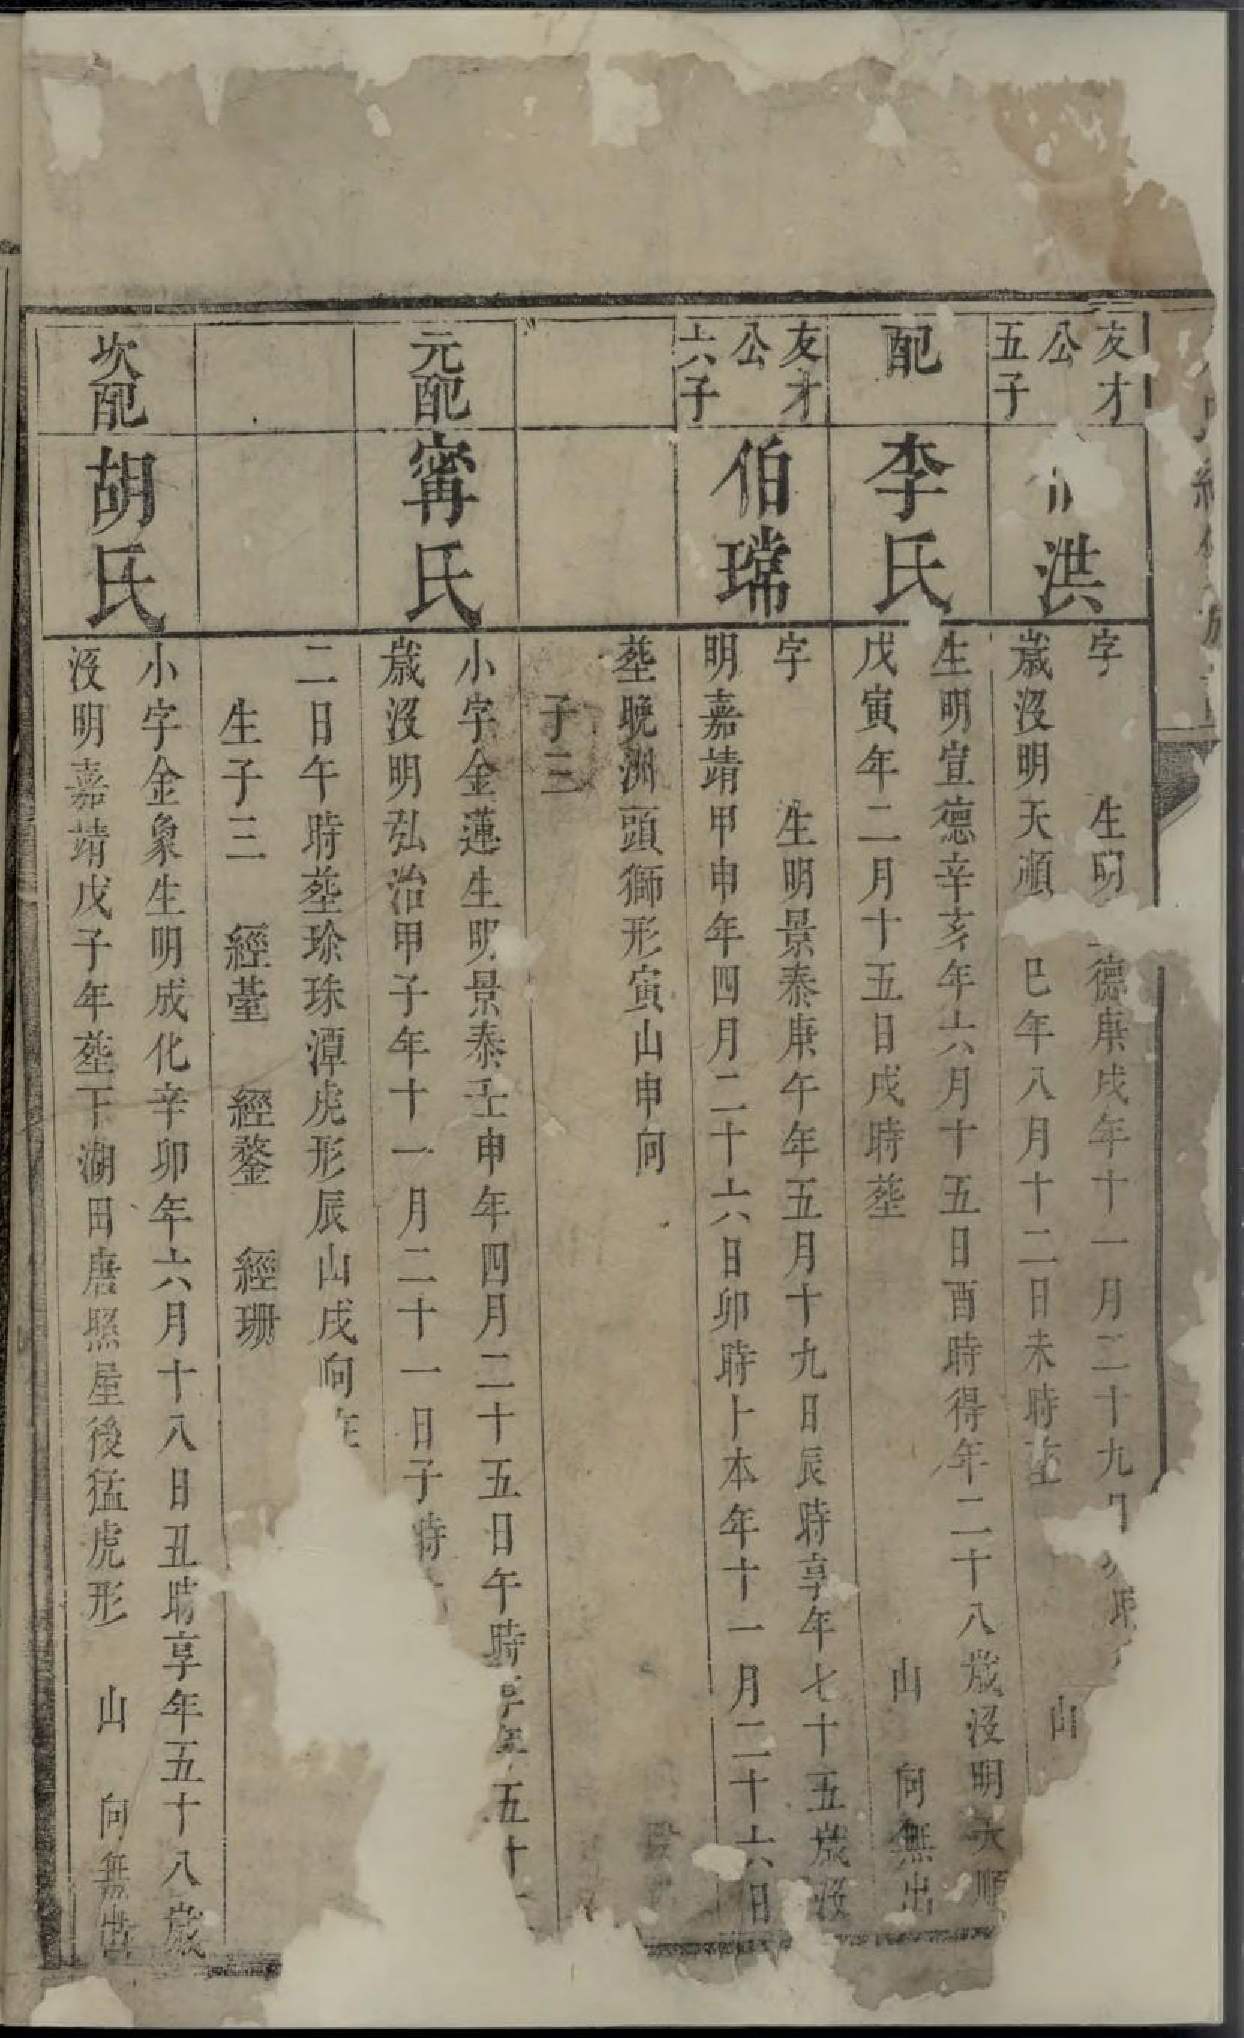 友才
公
五子
洪
字 生明 德庚戌年十一月二十九
歲沒明天順 巳年八月十二日未時塟 山
配
李氏
生明宣德辛亥年六月十五日酉時得年二十八歲沒明天順
戊寅年二月十五日戌時塟 山 向無出
友才
公
六子
伯瑺
字 生明景泰庚午年五月十九日辰時享年七十五歲沒
明嘉靖甲申年四月二十六日卯時卜本年十一月二十六日
塟晚洲頭獅形寅山申向
子三
元配
甯氏
小字金蓮生明景泰壬申年四月二十五日午時享年五十
歲沒明弘治甲子年十一月二十一日子時
二日午時塟珍珠潭虎形辰山戌向
生子三 經䑓 經鍪 經珊
次配
胡氏
小字金象生明成化辛卯年六月十八日丑時享年五十八歲
沒明嘉靖戊子年塟下湖田唐照屋後猛虎形 山 向無出